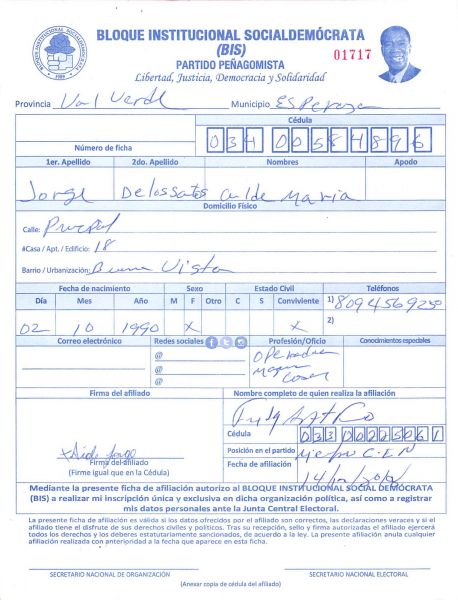 BLOQUE INSTITUCIONAL SOCIALDEMÓCRATA
(BIS)
01717
PARTIDO PEÑAGOMISTA
Libertad, Justicia, Democracia y Solidaridad
Provincia Valverde Municipio Esperanza
Cédula
Número de ficha 034 0058489 6
1er. Apellido 2do. Apellido Nombres Apodo
Jorge Delossatos de Maria
Domicilio Físico
Calle:
#Casa / Apt. / Edificio: 18
Barrio / Urbanización: Buena Vista
Fecha de nacimiento Sexo Estado Civil Teléfonos
Día Mes Año M F Otro C S Conviviente 1) 809456925
02 10 1990 X X 2)
Correo electrónico Redes sociales Profesión/Oficio Conocimientos especiales
@ Operadora
@ Maquina
@ Coser
Firma del afiliado Nombre completo de quien realiza la afiliación
Cédula 033 0022526 1
Posición en el partido C.E.N
Firma del afiliado Fecha de afiliación
(Firme igual que en la Cédula)
Mediante la presente ficha de afiliación autorizo al BLOQUE INSTITUCIONAL SOCIAL DEMÓCRATA
(BIS) a realizar mi inscripción única y exclusiva en dicha organización política, así como a registrar
mis datos personales ante la Junta Central Electoral.
La presente ficha de afiliación es válida si los datos ofrecidos por el afiliado son correctos, las declaraciones veraces y si el
afiliado tiene el disfrute de sus derechos civiles y políticos. Tras su recepción, sello y firma autorizadas el afiliado ejercerá
todos los derechos y los deberes estatutariamente sancionados, de acuerdo a la ley. La presente afiliación anula cualquier
afiliación realizada con anterioridad a la fecha que aparece en esta ficha.
SECRETARIO NACIONAL DE ORGANIZACIÓN SECRETARIO NACIONAL ELECTORAL
(Anexar copia de cédula del afiliado)